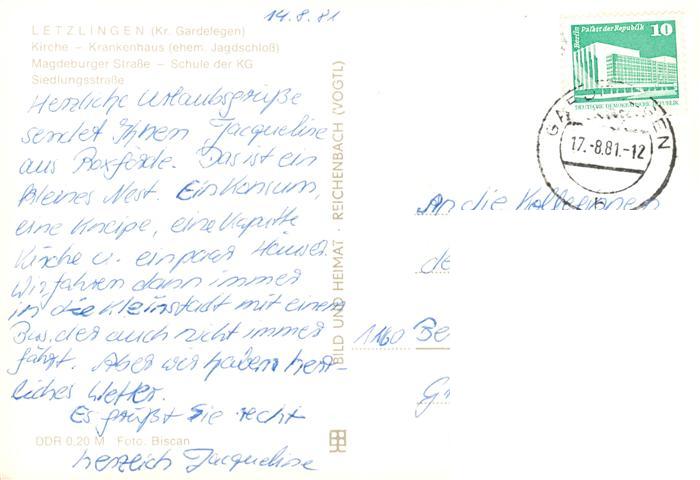 14.8.81
LETZLINGEN (Kr. Gardelegen)
Kirche – Krankenhaus (ehem. Jagdschloß)
Magdeburger Straße – Schule der KG
Siedlungsstraße
Herzliche Urlaubsgrüße
sendet Ihnen Jacqueline
aus Roxförde. Das ist ein
kleines Nest. Ein Konsum,
eine Kneipe, eine kaputte
Kirche u. ein paar Häuser.
Wir fahren dann immer
in die Kleinstadt mit einem
Bus, der auch nicht immer
fährt. Aber wir haben herr-
liches Wetter.
Es grüßt Sie recht
herzlich Jacqueline
DDR 0,20 M Foto: Biscan
BILD UND HEIMAT · REICHENBACH (VOGTL)
Berlin Palast der Republik 10
DEUTSCHE DEMOKRATISCHE REPUBLIK
17.-8.81.-12
An die Kolleginnen
de
1160 Be